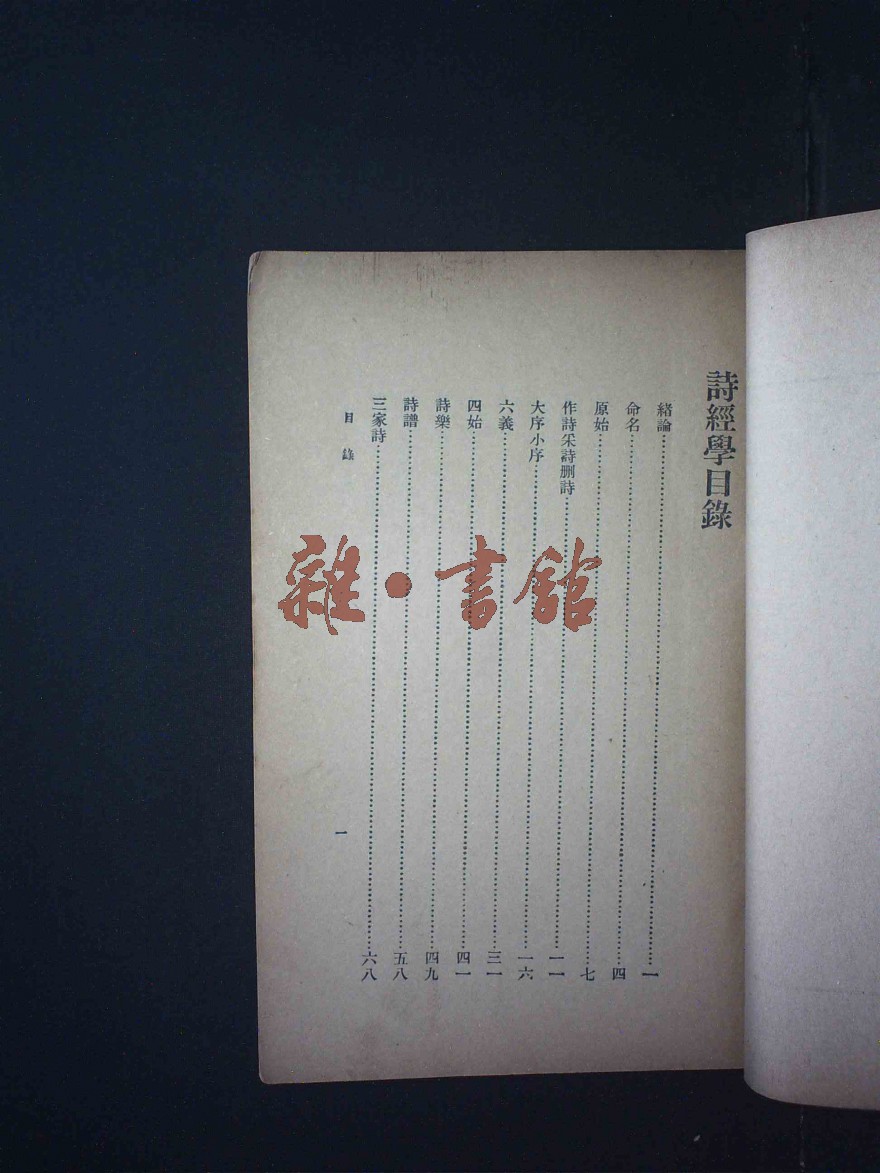 詩經學目錄
緒論⋯⋯一
命名⋯⋯四
原始⋯⋯七
作詩采詩删詩⋯⋯一一
大序小序⋯⋯一六
六義⋯⋯三一
四始⋯⋯四一
詩樂⋯⋯四九
詩譜⋯⋯五八
三家詩⋯⋯六八
目錄
一
雜·書館